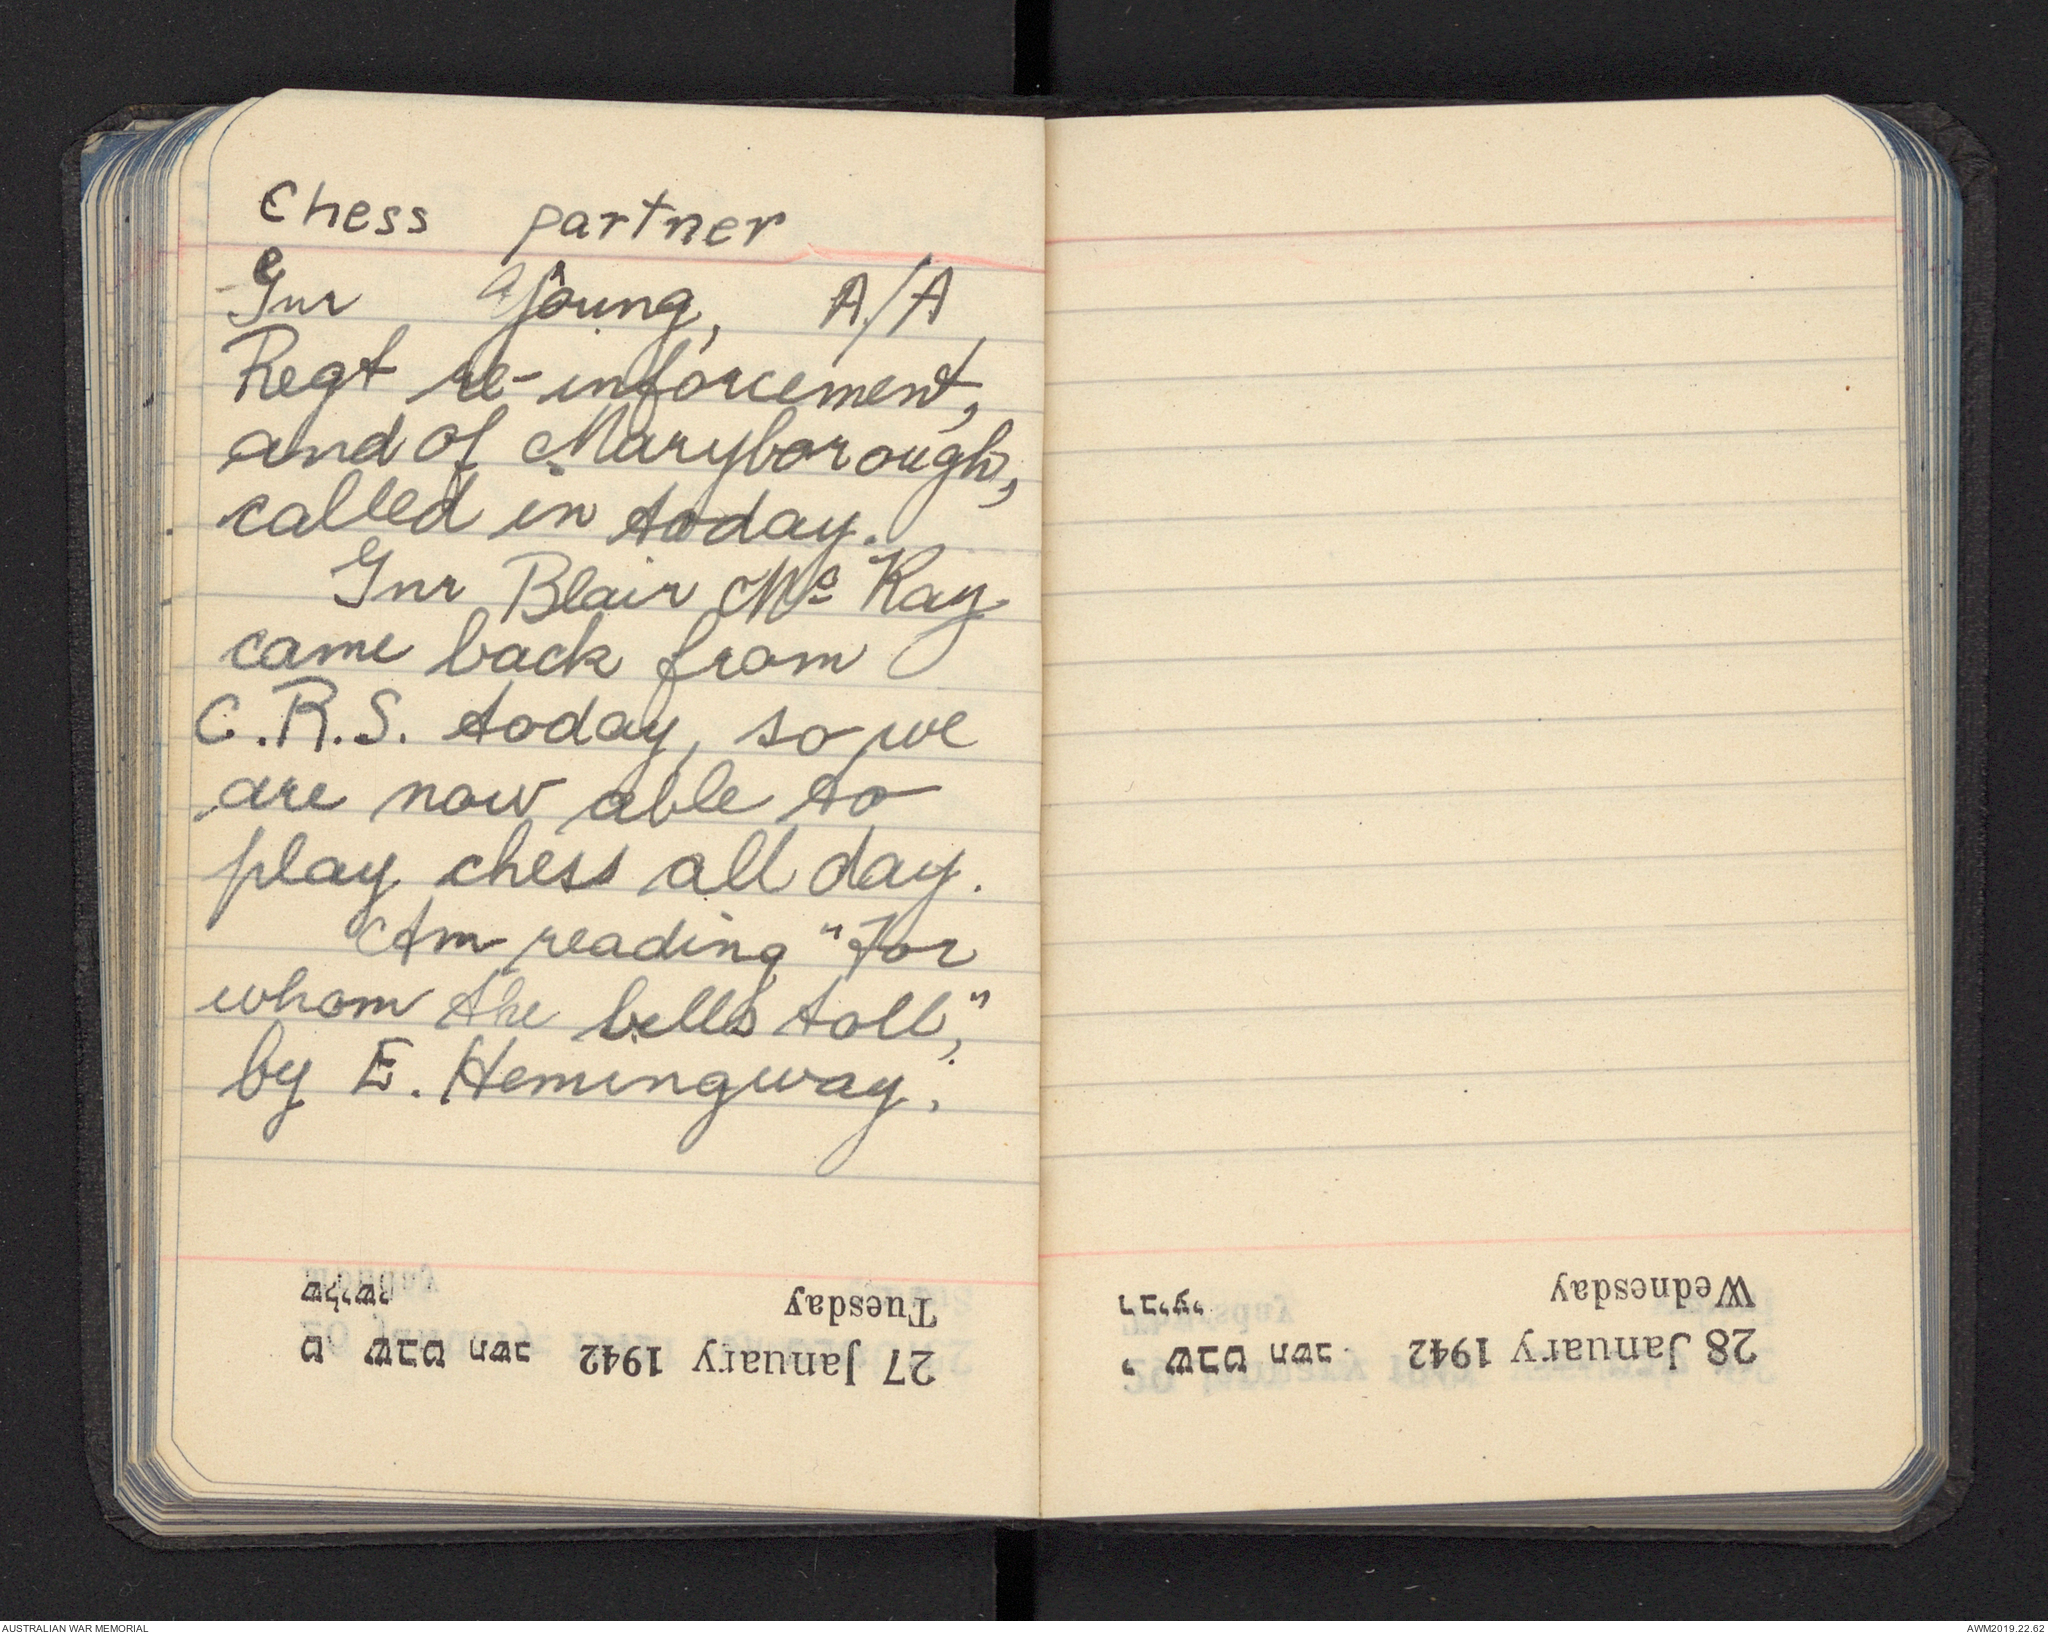 Chess partner
Gnr Young, A/A
Regt re-inforcement,
and of Maryborough,
called in today.
Gnr Blair Mc Kay
came back from
C.R.S. today, so we
are now able to
play chess all day.
Am reading "For
whom the bells toll",
by E. Hemingway.
שלישי Tuesday
ט שבט תשב 27 January 1942
רביעי Wednesday
י שבט תשב 28 January 1942
AUSTRALIAN WAR MEMORIAL
AWM2019.22.62